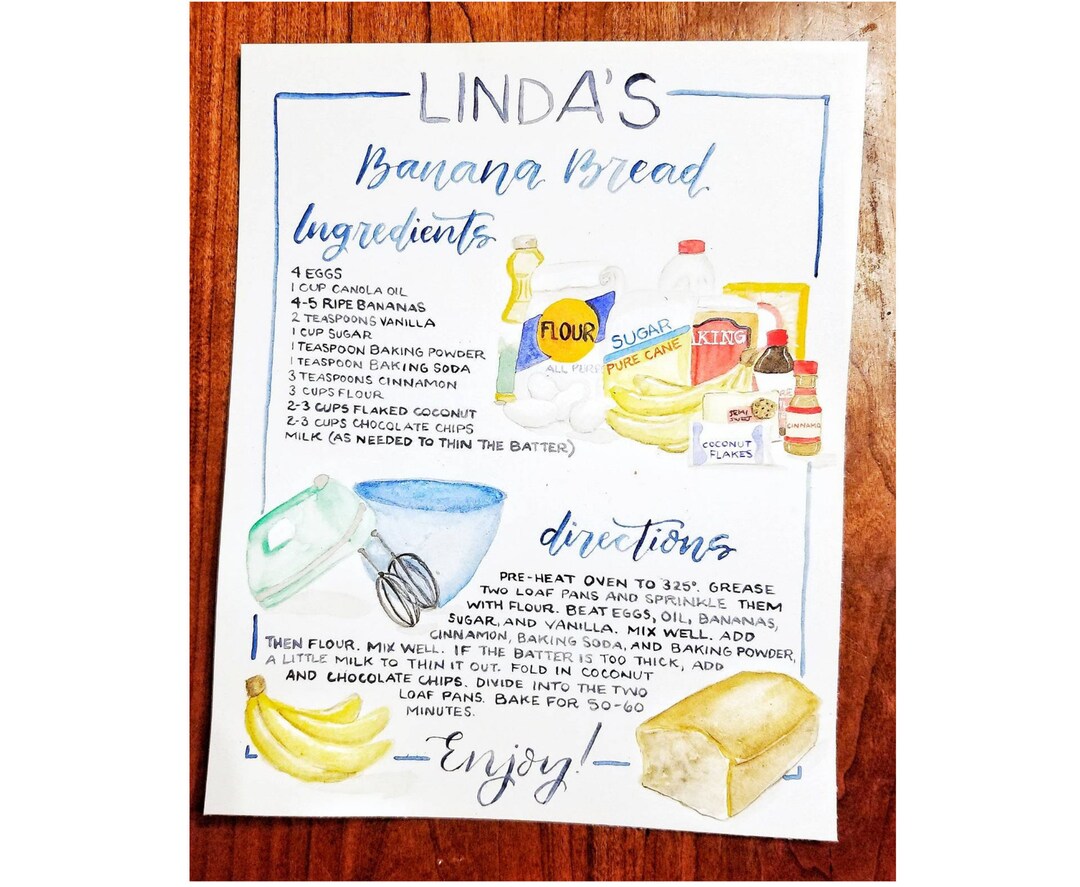 LINDA'S
Banana Bread
Ingredients
4 EGGS
1 CUP CANOLA OIL
4-5 RIPE BANANAS
2 TEASPOONS VANILLA
1 CUP SUGAR
1 TEASPOON BAKING POWDER
1 TEASPOON BAKING SODA
3 TEASPOONS CINNAMON
3 CUPS FLOUR
2-3 CUPS FLAKED COCONUT
2-3 CUPS CHOCOLATE CHIPS
MILK (AS NEEDED TO THIN THE BATTER)
FLOUR
ALL PURP
SUGAR
PURE CANE
KING
SEMI
SWEET
COCONUT
FLAKES
CINNAMO
directions
PRE-HEAT OVEN TO 325°. GREASE
TWO LOAF PANS AND SPRINKLE THEM
WITH FLOUR. BEAT EGGS, OIL, BANANAS,
SUGAR, AND VANILLA. MIX WELL. ADD
CINNAMON, BAKING SODA, AND BAKING POWDER,
THEN FLOUR. MIX WELL. IF THE BATTER IS TOO THICK, ADD
A LITTLE MILK TO THIN IT OUT. FOLD IN COCONUT
AND CHOCOLATE CHIPS. DIVIDE INTO THE TWO
LOAF PANS. BAKE FOR 50-60
MINUTES.
Enjoy!